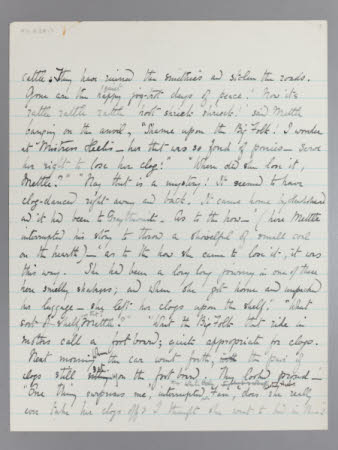 cattle. They have ruined the smithies and stolen the roads.
Gone are the happy jog-trot days of peace! Now it's
rattle rattle rattle hoot screech screech! said Mettle
banging on the anvil, "Shame upon the Big Folk! I wonder
at Mistress – her that was so fond of ponies – serve
her right to lose her clog!" "Where did she lose it,
Mettle?" "Nay that is a mystery! It seemed to have
clog-danced right away and back. It came home
and it had been to Graythwaite. As to the how – (here Mettle
interrupted his story to throw a shovelful of small coal
on the hearth) – as to the how she came to lose it; it was
this way. She had been a long long journey in one of these
here smelly and when she got home and unpacked
her luggage – she left her clogs upon the shelf." "What
sort of shelf, Mettle?" "What the Big Folk that ride in
motors call a foot board; quite appropriate for clogs.
Next morning the car went forth, the pair of
clogs still upon the foot board. They looked
"One thing surprises me," interrupted does she really
ever take her clogs off? I thought she went to bed in them?